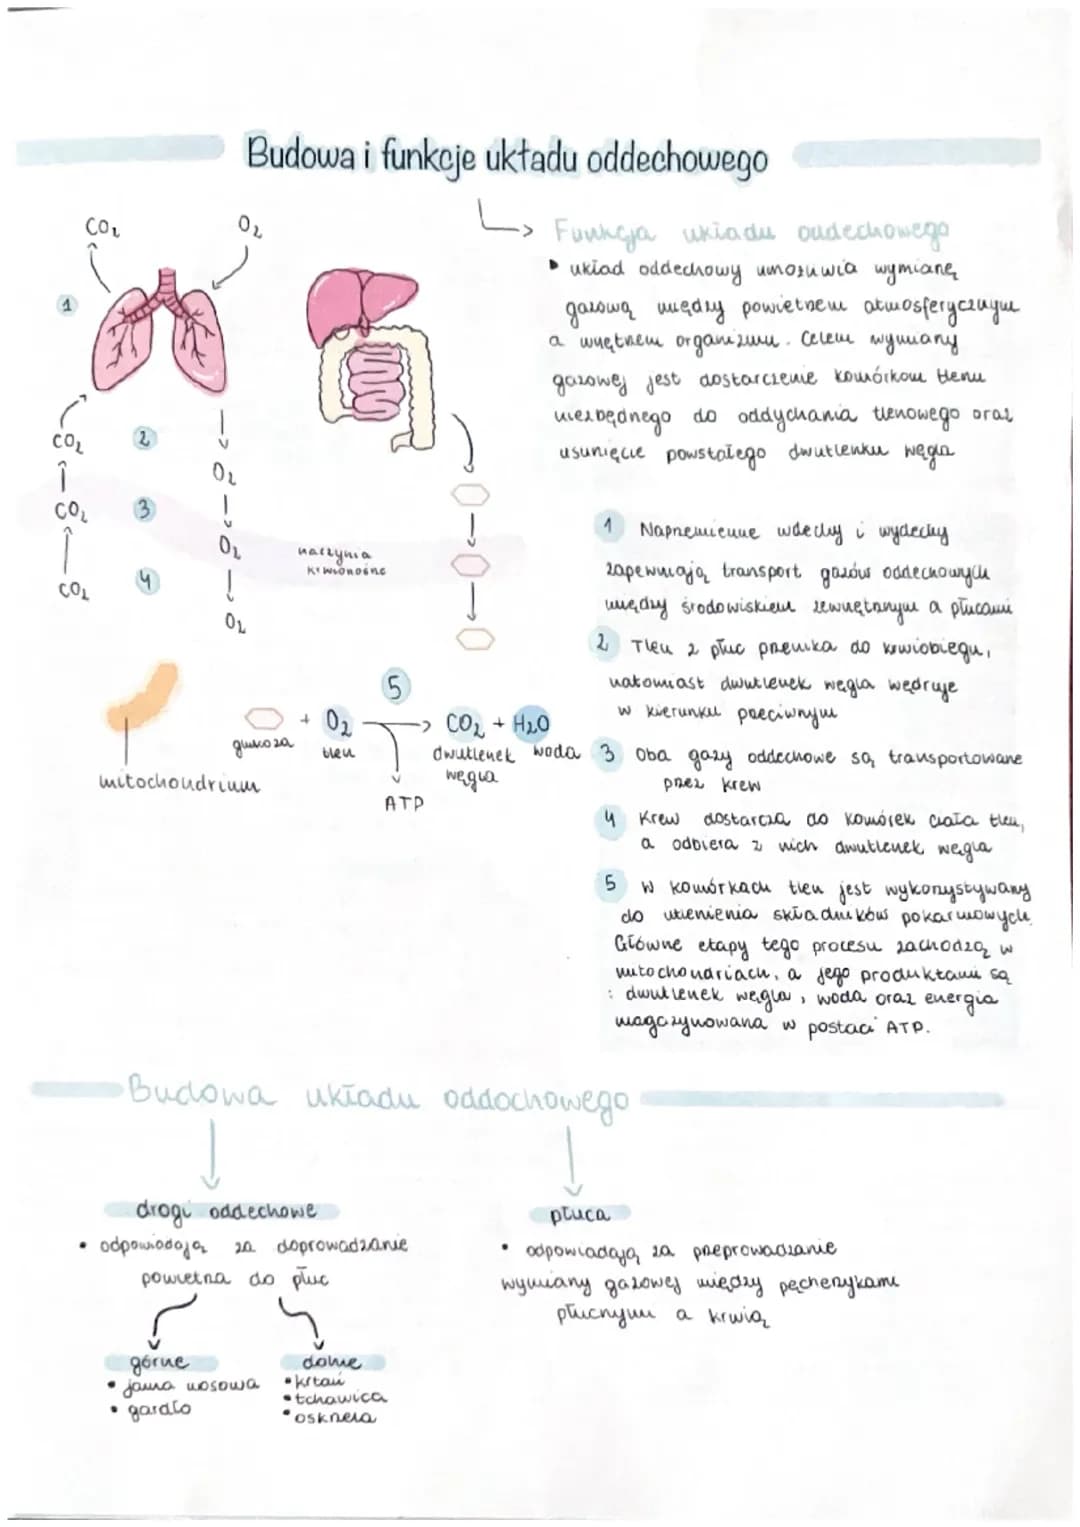 Budowa i funkcje układu oddechowego
CO₂
O₂
1
CO₂
2
O₂
CO₂
3
O₂
CO₂
4
O₂
naczynia
krwionośne
Funkcja układu oddechowego
układ oddechowy umożliwia wymianę
gazową między powietrzem atmosferycznym
a wnętrzem organizmu. Celem wymiany
gazowej jest dostarczenie komórkom tlenu
niezbędnego do oddychania tlenowego oraz
usunięcie powstałego dwutlenku węgla
1 Naprzemienne wdechy i wydechy
zapewniają transport gazów oddechowych
między środowiskiem zewnętrznym a płucami
2 Tlen z płuc przenika do krwiobiegu,
natomiast dwutlenek węgla wędruje
w kierunku przeciwnym
3 Oba gazy oddechowe są transportowane
przez krew
4 Krew dostarcza do komórek ciała tlen,
a odbiera z nich dwutlenek węgla
5 W komórkach tlen jest wykorzystywany
do utlenienia składników pokarmowych.
Główne etapy tego procesu zachodzą w
mitochondriach, a jego produktami są
: dwutlenek węgla, woda oraz energia
magazynowana w postaci ATP.
mitochondrium
5
+ O₂ → CO₂ + H₂O
glukoza tlen dwutlenek woda
węgla
ATP
Budowa układu oddochowego
drogi oddechowe
• odpowiadają za doprowadzanie
powietrza do płuc
górne
• jama nosowa
• gardło
dolne
• krtań
• tchawica
• oskrzela
płuca
• odpowiadają za przeprowadzanie
wymiany gazowej między pęcherzykami
płucnymi a krwią